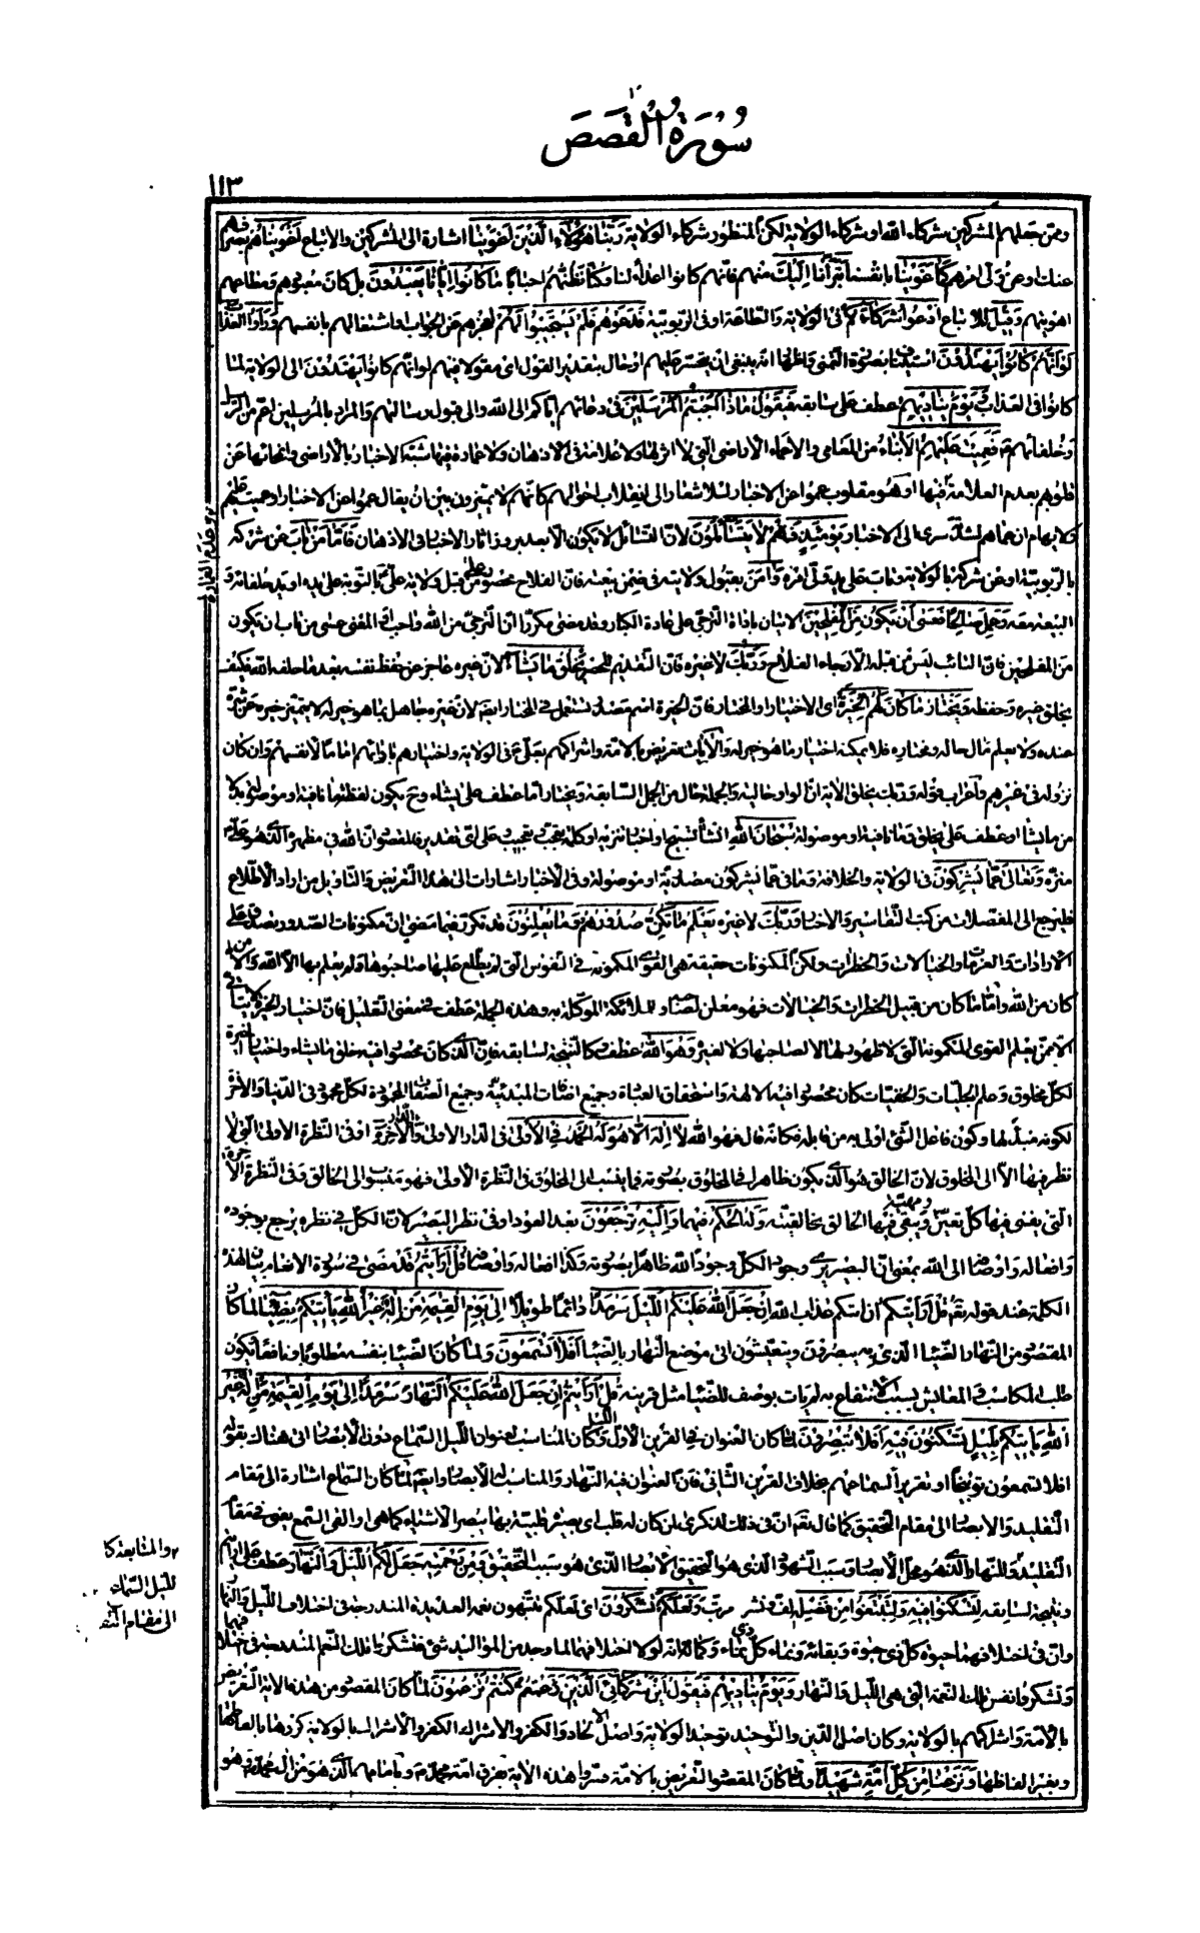 سُورَةُ الْقَصَصِ
١١٣
ومن جعلهم المشركين شركاء الله او شركاء الولاية لكن المنظور شركاء الولاية رَبَّنَا هٰؤُلَاءِ الَّذِينَ اَغْوَيْنَا اشارة الى المشركين والاتباع اَغْوَيْنَاهُمْ بصرفهم
عنك او عن ولى امرهم كَمَا غَوَيْنَا بانفسنا تَبَرَّأْنَا اِلَيْكَ منهم فانّهم كانوا اعداء لنا وكنّا نظنّهم احبابا مَا كَانُوا اِيَّانَا يَعْبُدُونَ بل كان معبودهم ومطاعهم
اهويتهم وَقِيلَ للاتباع ادْعُوا شُرَكَاءَكُمْ فى الولاية والطّاعة او فى الربوبيّة فَدَعَوْهُمْ فَلَمْ يَسْتَجِيبُوا لَهُمْ لعجزهم عن الجواب او اشتغالهم بانفسهم وَرَاَوُا الْعَذَابَ
لَوْ اَنَّهُمْ كَانُوا يَهْتَدُونَ استيناف بصورة التّمنّى واظهار انّه ينبغى ان يتحسّر عليهم او حال بتقدير القول اى مقولا فيهم لو انّهم كانوا يهتدون الى الولاية لما
كانوا فى العذاب وَيَوْمَ يُنَادِيهِمْ عطف على سابقه فَيَقُولُ مَاذَا اَجَبْتُمُ الْمُرْسَلِينَ فى دعائهم ايّاكم الى الله والى قبول رسالتهم والمراد بالمرسلين اعم من الرّسل
وخلفائهم فَعَمِيَتْ عَلَيْهِمُ الْاَنْبَاءُ من المعامى والاعماء الاراضى الّتى لا اثر لها ولا علامة فى الاذهان ولا عمارة فيها شبّه الاخبار بالاراضى وانمحائها عن
قلوبهم بعدم العلامة فيها او هو مقلوب عموا عن الاخبار لئلا اشعارا الى انقلاب احوالهم كانّهم لا يتميّزون بين ان يقال عموا عن الاخبار او عميت عليهم
ولايهام ان عماهم لشدّته سرى الى الاخبار يَوْمَئِذٍ فَهُمْ لَا يَتَسَاءَلُونَ لانّ التّسائل لا يكون الّا بعد بروز اثار الاخبار فى الاذهان فَاَمَّا مَنْ تَابَ عن شركه
بالرّبوبيّة او عن شركه بالولاية وتاب على يد ولىّ امره وَآمَنَ بقبول ولايته فى ضمن بيعته فانّ الفلاح مخصوص بمن قبل ولاية علىّ بالتّوبة على يده او يد خلفائه و
البيعة معه وَعَمِلَ صَالِحًا فَعَسَى اَنْ يَكُونَ مِنَ الْمُفْلِحِينَ الاتيان باداة التّرجّى على عادة الكبار وقد مضى مكرّرا انّ التّرجّى من الله واجب او المعنى عسى من تاب ان يكون
من المفلحين فانّ التائب ليس من قبله الّا رجاء الفلاح وَرَبُّكَ لا غيره فانّ التّقديم للحصر يَخْلُقُ مَا يَشَاءُ لانّ غيره عاجز عن حفظ نفسه بعد ما خلقه الله فكيف
بخلق غيره وحفظه وَيَخْتَارُ مَا كَانَ لَهُمُ الْخِيَرَةُ اى الاختيار او المختار فانّ الخيرة اسم مصدر تستعمل فى المختار ايضا لانّ غيره جاهل بما هو خير له لا يتميّز خيره عن شرّه
عنده ولا يعلم مال حاله ومختاره فلا يمكنه اختيار ما هو خير له والآيات تعريض بالامّة واشراكهم بعلىّ فى الولاية واختيارهم بارائهم اماما لانفسهم وان كان
نزوله فى غيرهم واعراب قوله وربّك يخلق الآية انّ الواو حالية والجملة حال من الجمل السّابقة ويختار امّا عطف على يشاء وح يكون لفظة ما نافية او موصولة بدلا
من ما يشاء او عطف على يخلق وما نافية او موصولة سُبْحَانَ اللهِ انشاء تسبيح واخبار تنزيه او كلمة تعجّب تعجيب على اىّ تقدير فالمقصود انّ الله فى مظهره الّذى هو علىّ
منزّه وَتَعَالَى عَمَّا يُشْرِكُونَ فى الولاية والخلافة وما فى عمّا يشركون مصدريّة او موصولة وفى الاخبار اشارات الى هذا التّعريض والتّأويل من اراد الاطّلاع
فليرجع الى المفصّلات من كتب التّفاسير والاخبار وَرَبُّكَ لا غيره يَعْلَمُ مَا تُكِنُّ صُدُورُهُمْ وَمَا يُعْلِنُونَ قد تكرّر فيما مضى انّ مكنونات الصّدور
الارادات والعزمات والخيالات والخطرات ولكن المكنونات حقيقة هى القوى المكمونة فى النّفوس الّتى لم يطّلع عليها صاحبوها ولم يعلم بها الّا الله والا من
كان من الله وامّا ما كان من قبيل الخطرات والخيالات فهو معلن لصاحبه وللملائكة الموكّلة به وهذه الجملة عطف فى معنى التّعليل فانّ اختيار الخير
الا ممّن يعلم القوى المكمونة الّتى لا ظهور لها لا لصاحبها ولا لغيره وَهُوَ اللهُ عطف كالنّتيجة لسابقه فانّ الّذى كان مخصوصا فيه خلق ما يشاء واختيار الخيرة
لكلّ مخلوق وعلم الجليّات والخفيّات كان مخصوصا فيه الالهة واستحقاق العبادة وجميع اضافات المبدئيّة وجميع الصّفات المحمودة لكلّ محمود فى الدّنيا والاخرة
لكونه مبدأ لها وكون فاعل الشّىء اولى به من قابله فكانّه قال فهو الله لَا اِلٰهَ اِلَّا هُوَ لَهُ الْحَمْدُ فِي الْاُولَى فى الدّار الاولى وَالْآخِرَةِ او فى النّظرة الاولى الّتى لا
نظر فيها الّا الى المخلوق لانّ الخالق هو الّذى يكون ظاهرا فى المخلوق بصورته فما ينسب الى المخلوق فى النّظرة الاولى فهو منسوب الى الخالق وفى النّظرة الآخرة
الّتى يفنى فيها كلّ تعيّن ويبقى فيها الخالق بخالقيّته وَلَهُ الْحُكْمُ فيهما وَاِلَيْهِ تُرْجَعُونَ بعد العود او فى نظر البصير لانّ الكلّ فى نظره يرجع بوجوده
وافعاله واوصافه الى الله بمعنى انّ البصير يرى وجود الكلّ وجودا لله ظاهرا بصورته وكذا افعاله واوصافه قُلْ اَرَاَيْتُمْ قد مضى فى سورة الانعام بيان هذه
الكلمة عند قوله تعالى قل ارأيتكم ان اتيكم عذاب الله اِنْ جَعَلَ اللهُ عَلَيْكُمُ اللَّيْلَ سَرْمَدًا دائما طويلا اِلَى يَوْمِ الْقِيٰمَةِ مَنْ اِلٰهٌ غَيْرُ اللهِ يَأْتِيكُمْ بِضِيَاءٍ لما كان
المقصود من النّهار الضّياء الّذى به يبصرون ويتعيّشون اتى موضع النّهار بالضّياء اَفَلَا تَسْمَعُونَ ولمّا كان الضّياء بنفسه مطلوبا ونافعا يكون
طلب المكاسب فى المعايش بسبب الانتفاع به لم يأت بوصف للضّياء مثل قرينه قُلْ اَرَاَيْتُمْ اِنْ جَعَلَ اللهُ عَلَيْكُمُ النَّهَارَ سَرْمَدًا اِلَى يَوْمِ الْقِيٰمَةِ مَنْ اِلٰهٌ غَيْرُ
اللهِ يَأْتِيكُمْ بِلَيْلٍ تَسْكُنُونَ فِيهِ اَفَلَا تُبْصِرُونَ لمّا كان العنوان فى القرين الاوّل اللّيل وكان المناسب لعنوان اللّيل السّماع دون الابصار اتى هناك بقوله
افلا تسمعون توبيخا او تقريرا لسماعهم بخلاف القرين الثّانى فانّ العنوان فيه النّهار والمناسب له الابصار وايضا لمّا كان السّماع اشارة الى مقام
التّقليد والابصار الى مقام التّحقيق كما قال تعالى انّ فى ذلك لذكرى لمن كان له قلب اى بصيرة قلبيّة بها يبصر الاشياء كما هى او القى السّمع يعنى فى مقام
التّقليد وللنّهار الّذى هو محلّ الابصار وسبب الشّهود الّذى هو التّحقيق الابصار الّذى هو سبب التّحقيق وَمِنْ رَحْمَتِهِ جَعَلَ لَكُمُ اللَّيْلَ وَالنَّهَارَ عطف على ارأيتم
ونتيجة لسابقه لِتَسْكُنُوا فِيهِ وَلِتَبْتَغُوا مِنْ فَضْلِهِ لفّ ونشر مرتّب وَلَعَلَّكُمْ تَشْكُرُونَ اى لعلّكم تنتبهون نعمه العديدة المندرجة فى اختلاف اللّيل والنّهار
وانّ فى اختلافهما حيوة كلّ ذى حيوة وبقائه ونماء كلّ ذى نماء وكمالاته لولا اختلافهما لما وجد من المواليد شىء فتشكروا تلك النّعم المندرجة فى اختلافهما
وتشكروا نفس تلك النّعمة الّتى هى اللّيل والنّهار وَيَوْمَ يُنَادِيهِمْ فَيَقُولُ اَيْنَ شُرَكَائِيَ الَّذِينَ كُنْتُمْ تَزْعُمُونَ لمّا كان المقصود من هذه الآية التّعريض
بالامّة واشراكهم بالولاية وكان اصل الدّين والتّوحيد توحيد الولاية واصل الالحاد والكفر والاشراك الكفر والاشراك بالولاية كرّرها بالفاظها
وبغير الفاظها وَنَزَعْنَا مِنْ كُلِّ اُمَّةٍ شَهِيدًا ولمّا كان المقصود التّعريض بالامّة فسّروا هذه الآية بفرق امّة محمّد ص وبامامهم الّذى هو من ال محمّد ص وهو
والمتابعة كا
لليل السّماء
الى مقام